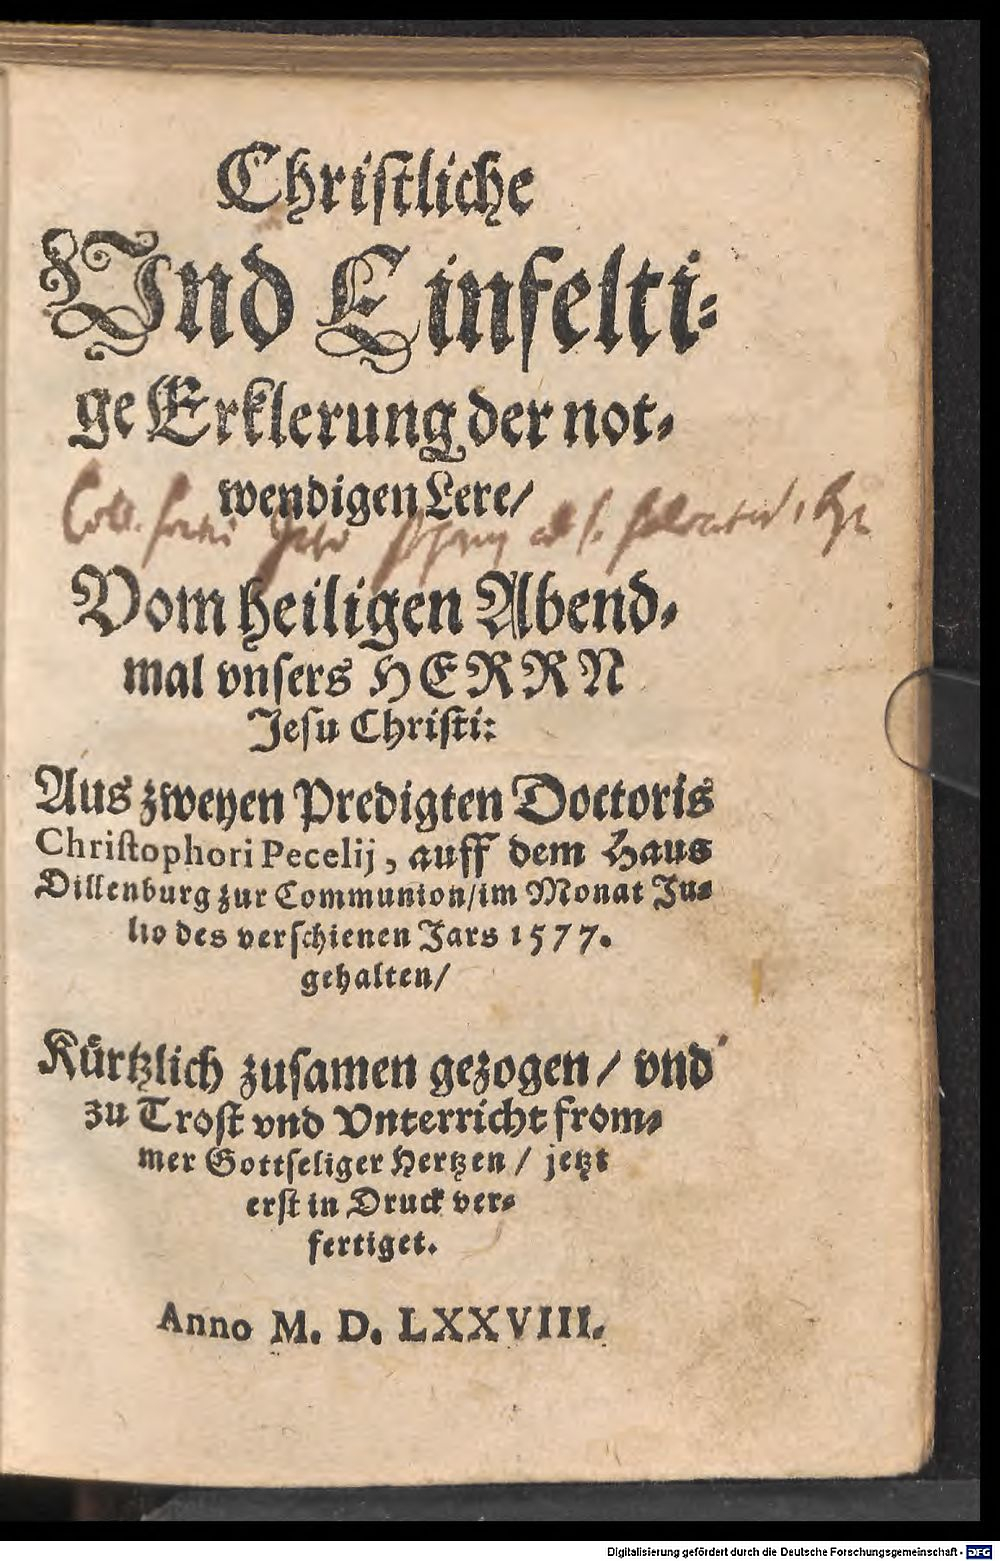 Christliche
Vnd Einfelti⸗
ge Erklerung der not⸗
wendigen Lere/
Coll.
Vom heiligen Abend⸗
mal vnsers HERRN
Jesu Christi:
Aus zweyen Predigten Doctoris
Christophori Pecelij, auff dem Haus
Dillenburg zur Communion/im Monat Ju⸗
lio des verschienen Jars 1577.
gehalten/
Kürtzlich zusamen gezogen/ vnd
zu Trost vnd Vnterricht from⸗
mer Gottseliger Hertzen/ jetzt
erst in Druck ver⸗
fertiget.
Anno M. D. LXXVIII.
Digitalisierung gefördert durch die Deutsche Forschungsgemeinschaft - DFG